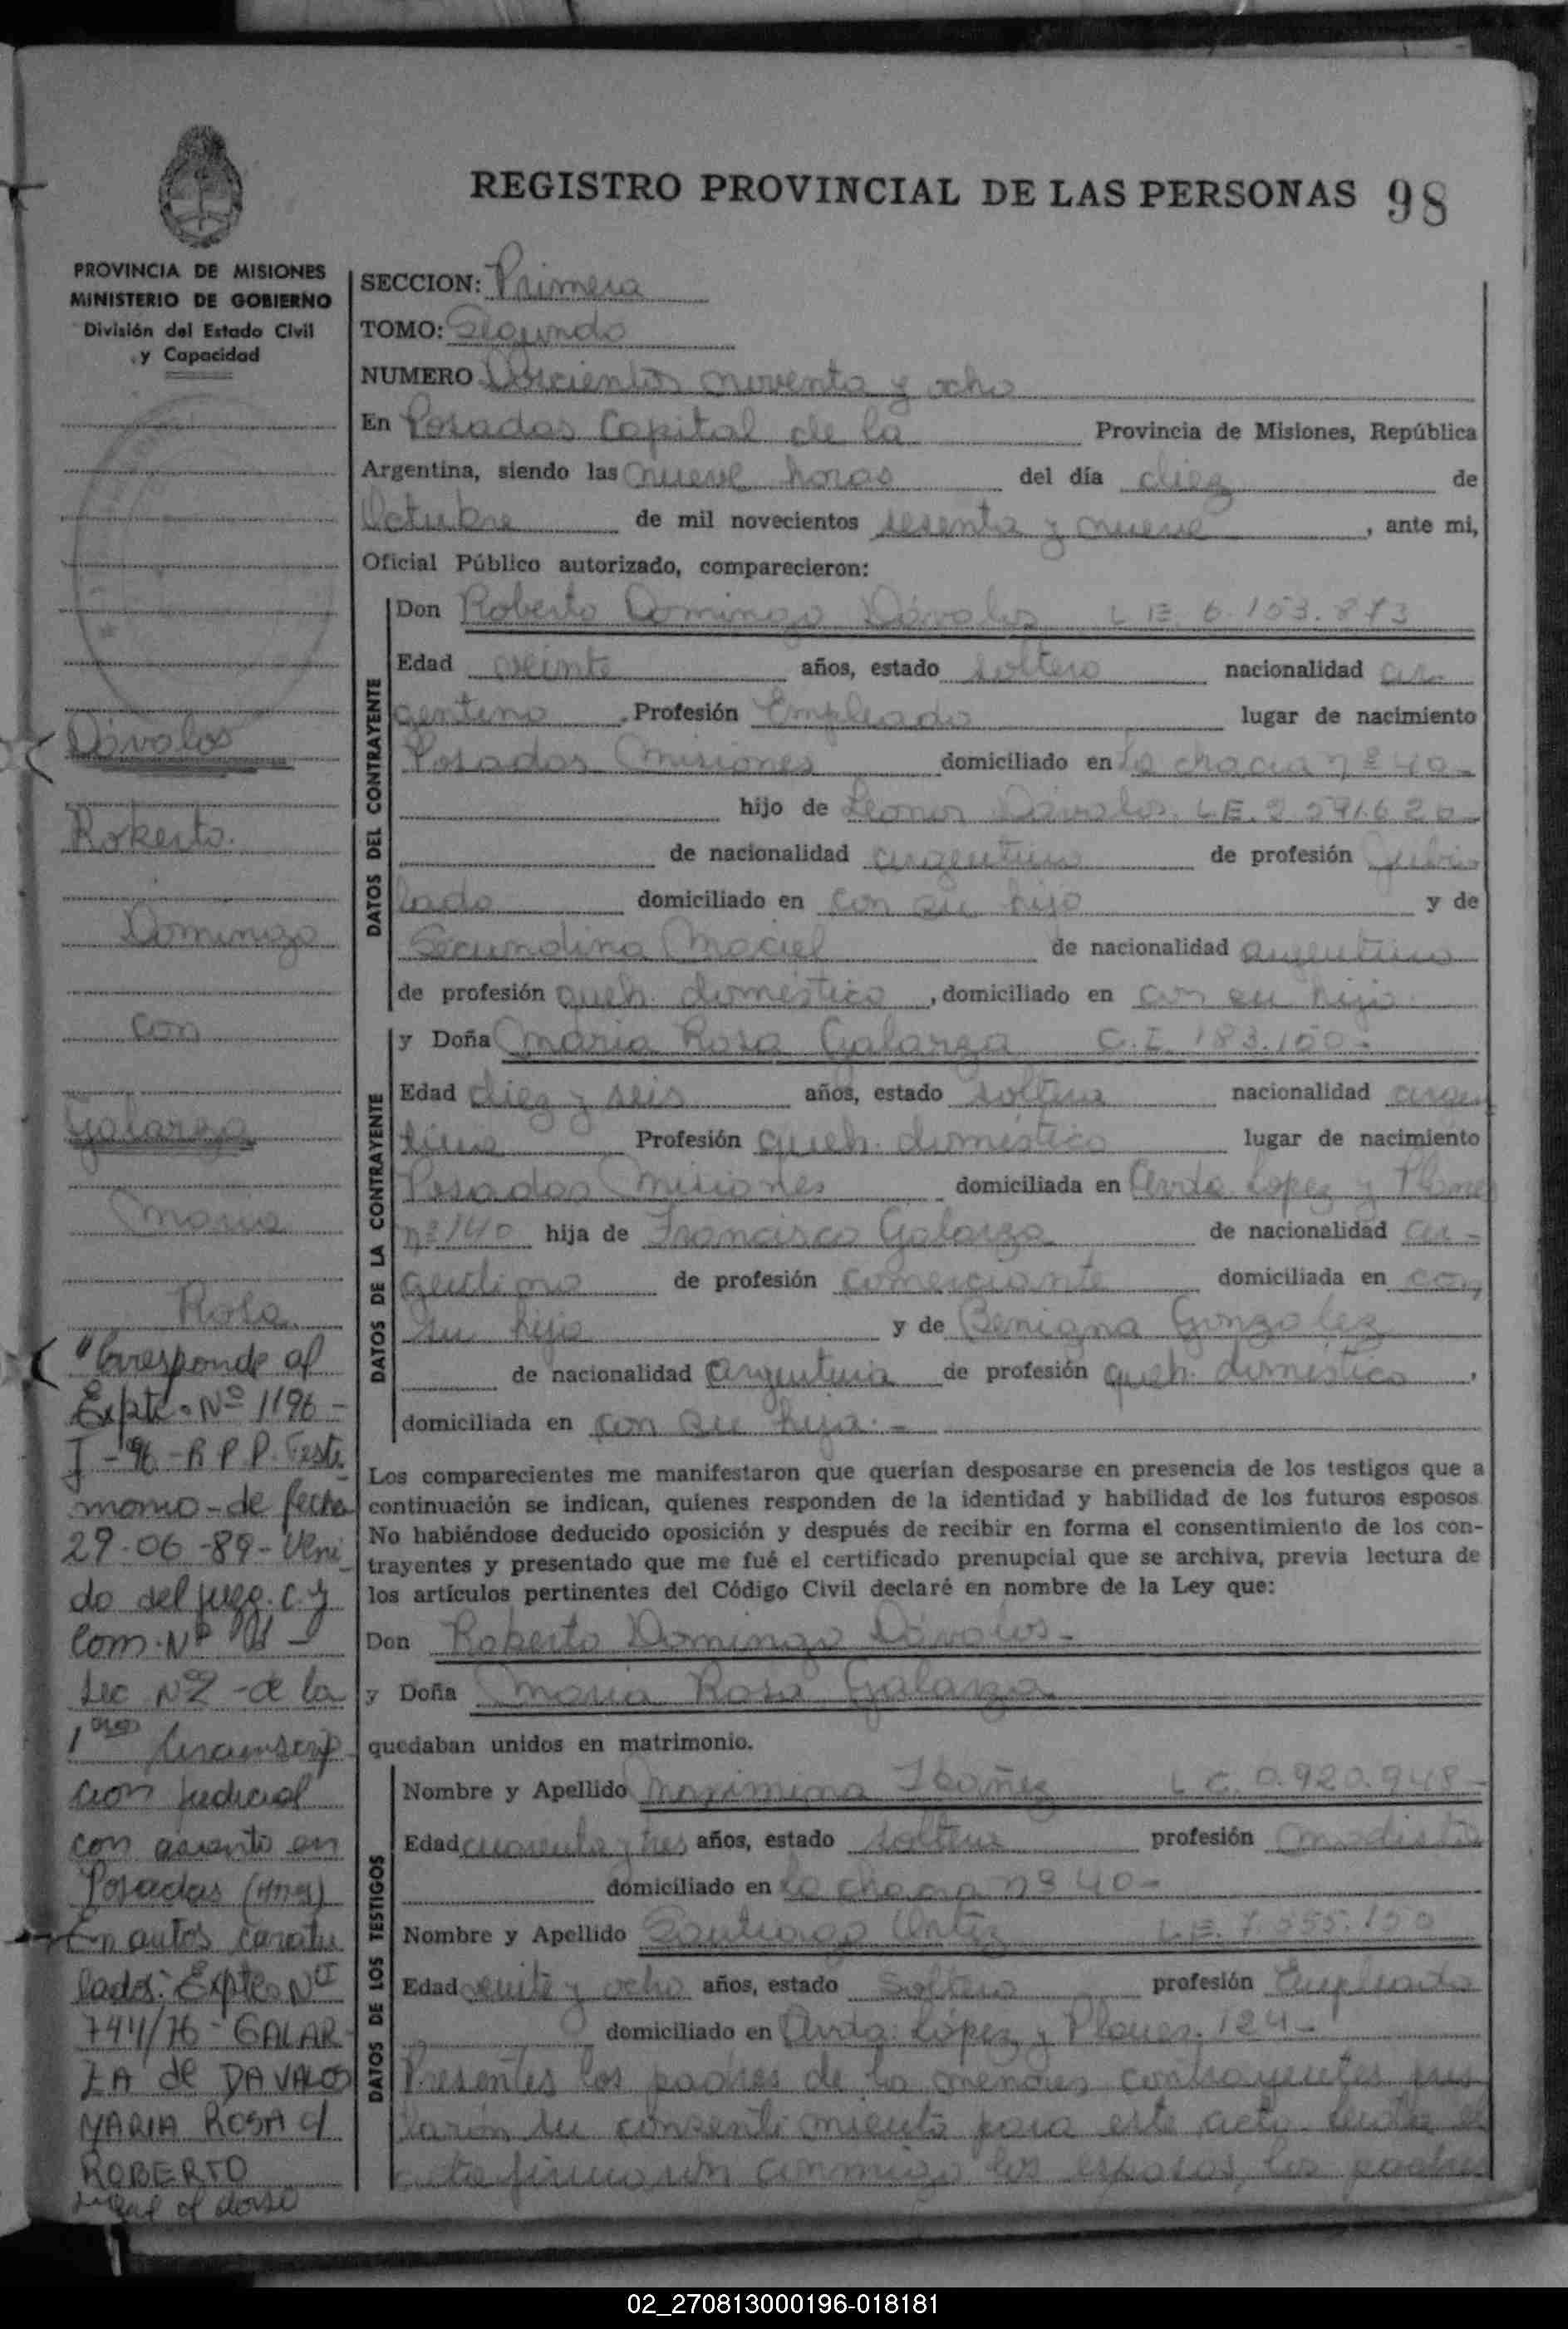 REGISTRO PROVINCIAL DE LAS PERSONAS 98
PROVINCIA DE MISIONES
MINISTERIO DE GOBIERNO
División del Estado Civil
y Capacidad
SECCION: Primera
TOMO: Segundo
NUMERO Doscientos noventa y ocho
En Posadas Capital de la Provincia de Misiones, República
Argentina, siendo las nueve horas del día diez de
Octubre de mil novecientos sesenta y nueve, ante mi,
Oficial Público autorizado, comparecieron:
DATOS DEL CONTRAYENTE
Don Roberto Domingo Dávalos L.E. 6.153.873
Edad veinte años, estado soltero nacionalidad ar-
gentino. Profesión Empleado lugar de nacimiento
Posadas Misiones domiciliado en La chacra nº 40-
hijo de Leonor Dávalos L.E. 2.591.620-
de nacionalidad argentino de profesión Jubi
lado domiciliado en con su hijo y de
Secundina Maciel de nacionalidad argentina
de profesión queh. doméstico, domiciliado en con su hijo.
DATOS DE LA CONTRAYENTE
y Doña Maria Rosa Galarza C.I. 183.150-
Edad diez y seis años, estado soltera nacionalidad argen
tina Profesión queh. doméstico lugar de nacimiento
Posadas Misiones domiciliada en Avda. Lopez y Planes
nº 140 hija de Francisco Galarza de nacionalidad ar-
gentino de profesión comerciante domiciliada en con
su hija y de Benigna Gonzalez
de nacionalidad argentina de profesión queh. doméstico,
domiciliada en con su hija.-
Los comparecientes me manifestaron que querían desposarse en presencia de los testigos que a
continuación se indican, quienes responden de la identidad y habilidad de los futuros esposos
No habiéndose deducido oposición y después de recibir en forma el consentimiento de los con-
trayentes y presentado que me fué el certificado prenupcial que se archiva, previa lectura de
los artículos pertinentes del Código Civil declaré en nombre de la Ley que:
Don Roberto Domingo Dávalos-
y Doña Maria Rosa Galarza
quedaban unidos en matrimonio.
DATOS DE LOS TESTIGOS
Nombre y Apellido Maximina Ibañez L.C. 0.920.948-
Edad cuarenta y tres años, estado soltera profesión modista
domiciliado en la chacra nº 40-
Nombre y Apellido Santiago Ortiz L.E. 7.555.150
Edad veinte y ocho años, estado Soltero profesión Empleado
domiciliado en Avda. López y Planes. 124-
Presentes los padres de los menores contrayentes pres
taron su consentimiento para este acto. Leída el
acta firmaron conmigo los esposos, los padres
Dávalos
Roberto.
Domingo
con
Galarza
Maria
Rosa.
"Corresponde al
Expte. Nº 1196-
I-96-R P P. Testi
monio-de fecha
29-06-89-Veni
do del juzg. C. y
Com. Nº 01-
Sec Nº2-de la
1era Circunscrip
cion Judicial
con asiento en
Posadas (Mnes)
En autos caratu
lados: Expte Nº
744/76-GALAR
ZA de DAVALOS
MARIA ROSA c/
ROBERTO
sigue al dorso
02_270813000196-018181